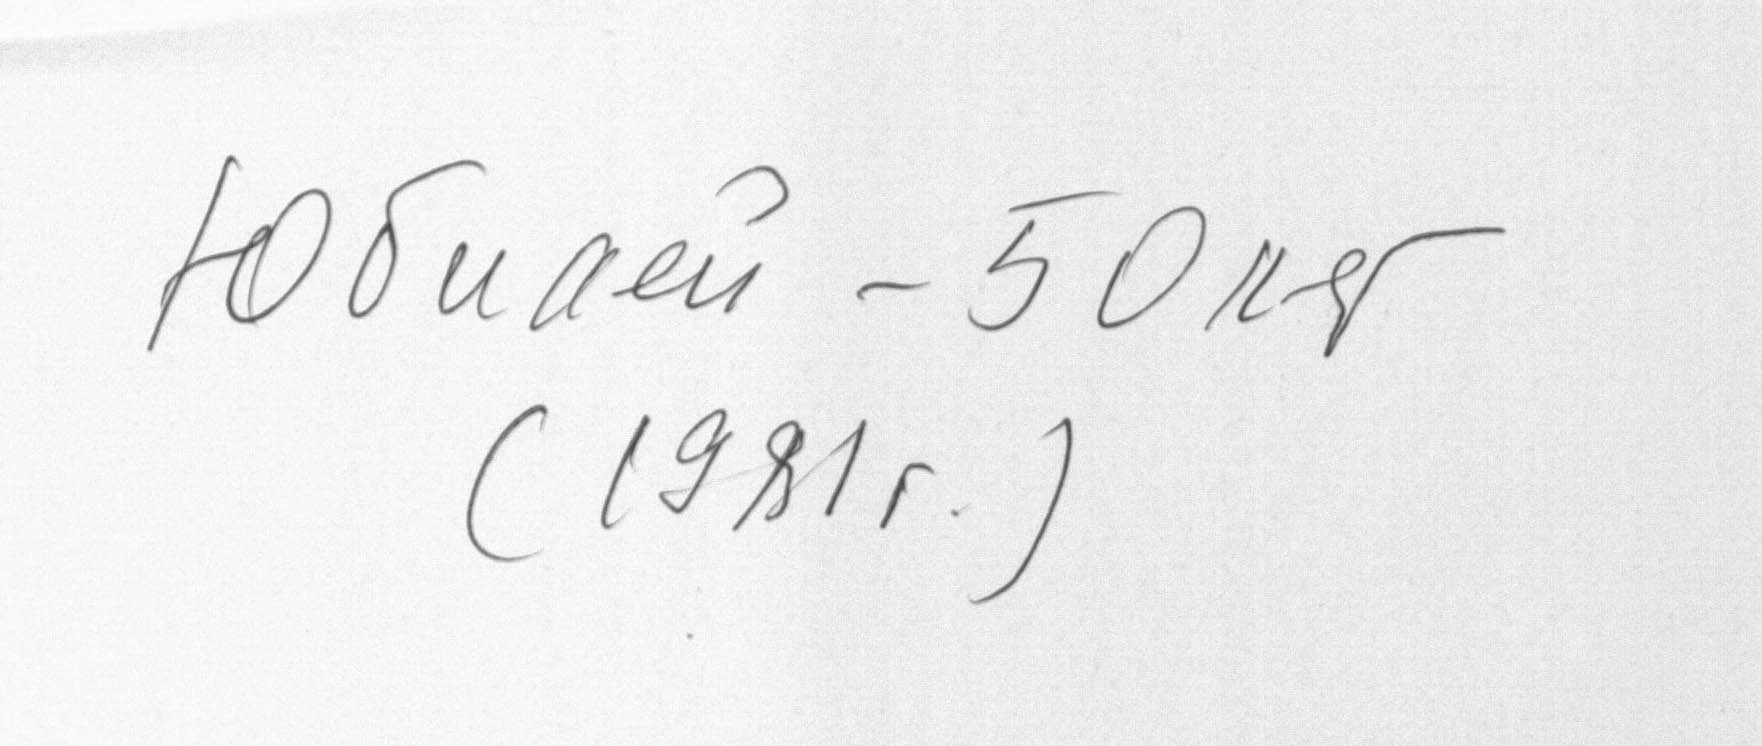 Юбилей - 50 лет
(1981 г.)